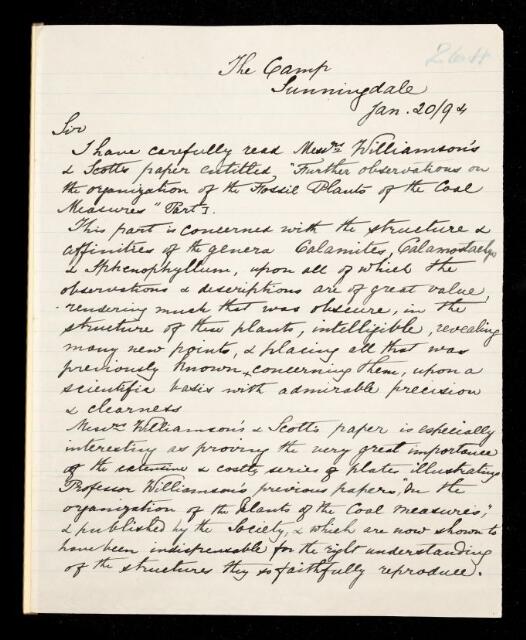 The Camp
Sunningdale
Jan. 20/94
Sir
I have carefully read Messrs Williamson's
& Scotts paper entitled, "Further observations on
the organization of the Fossil Plants of the Coal
Measures" Part I.
This part is concerned with the structure &
affinities of the genera Calamites, Calamostachys
& Sphenophyllum, upon all of which the
observations & descriptions are of great value,
rendering much that was obscure, in the
structure of these plants, intelligible, revealing
many new points, & placing all that was
previously known, concerning them, upon a
scientific basis with admirable precision
& clearness
Messrs Williamson's & Scotts paper is especially
interesting as proving the very great importance
of the extensive & costly series of plates illustrating
Professor Williamson's previous papers, "On the
organization of the Plants of the Coal measures,"
& published by the Society, & which are now shown to
have been indispensable for the right understanding
of the structures they so faithfully reproduce.